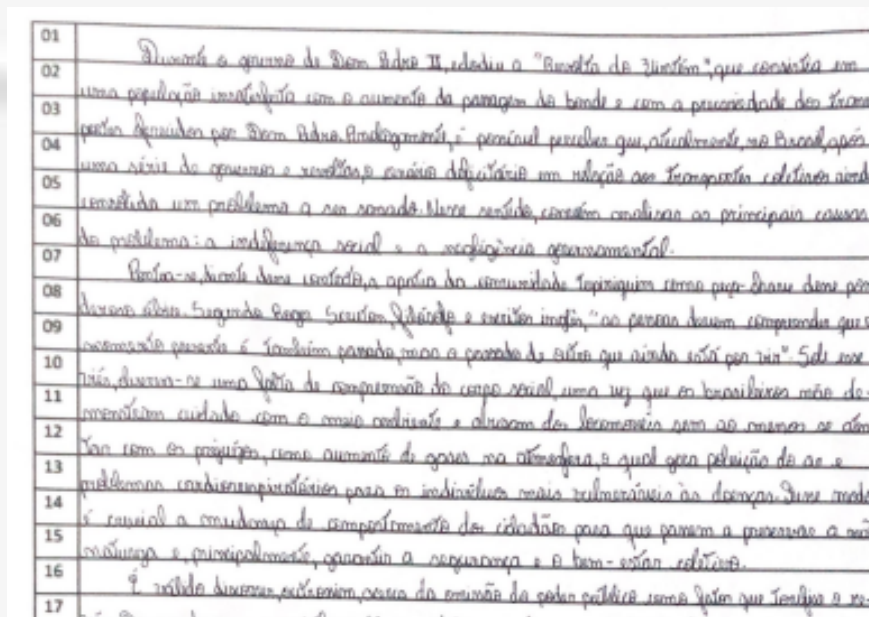 01
Durante o governo de Dom Pedro II, eclodiu a "Revolta do Vintém", que consistia em
02
uma população insatisfeita com o aumento da passagem do bonde e com a precariedade dos trans-
03
portes por Dom Pedro. Analogamente, é possível perceber que, atualmente, no Brasil, após
04
uma série de governos e revoltas, o cenário deficitário em relação aos transportes coletivos ainda
05
um problema a ser sanado. Nesse sentido, convém analisar as principais causas
06
do problema: a indiferença social e a negligência governamental.
07
diante desse contexto, a apatia da comunidade tupiniquim como peça-chave desse
08
Segundo Roger Scruton, filósofo e escritor inglês, "as pessoas devem compreender que o
09
momento presente é também passado, mas o passado de outro que ainda está por vir". Sob esse
10
viés, observa-se uma falta de compreensão do corpo social, uma vez que os brasileiros não de-
11
monstram cuidado com o meio ambiente e abusam dos sem ao menos se
12
com os prejuízos, como aumento de gases na atmosfera, o qual gera poluição do ar e
13
problemas cardiorrespiratórios para os indivíduos mais vulneráveis às doenças. Desse modo,
14
é crucial a mudança de comportamento dos cidadãos para que passem a preservar a
15
natureza e, principalmente, garantir a segurança e o bem-estar coletivo.
16
É válido discorrer, outrossim, acerca da omissão do poder público como fator que
17